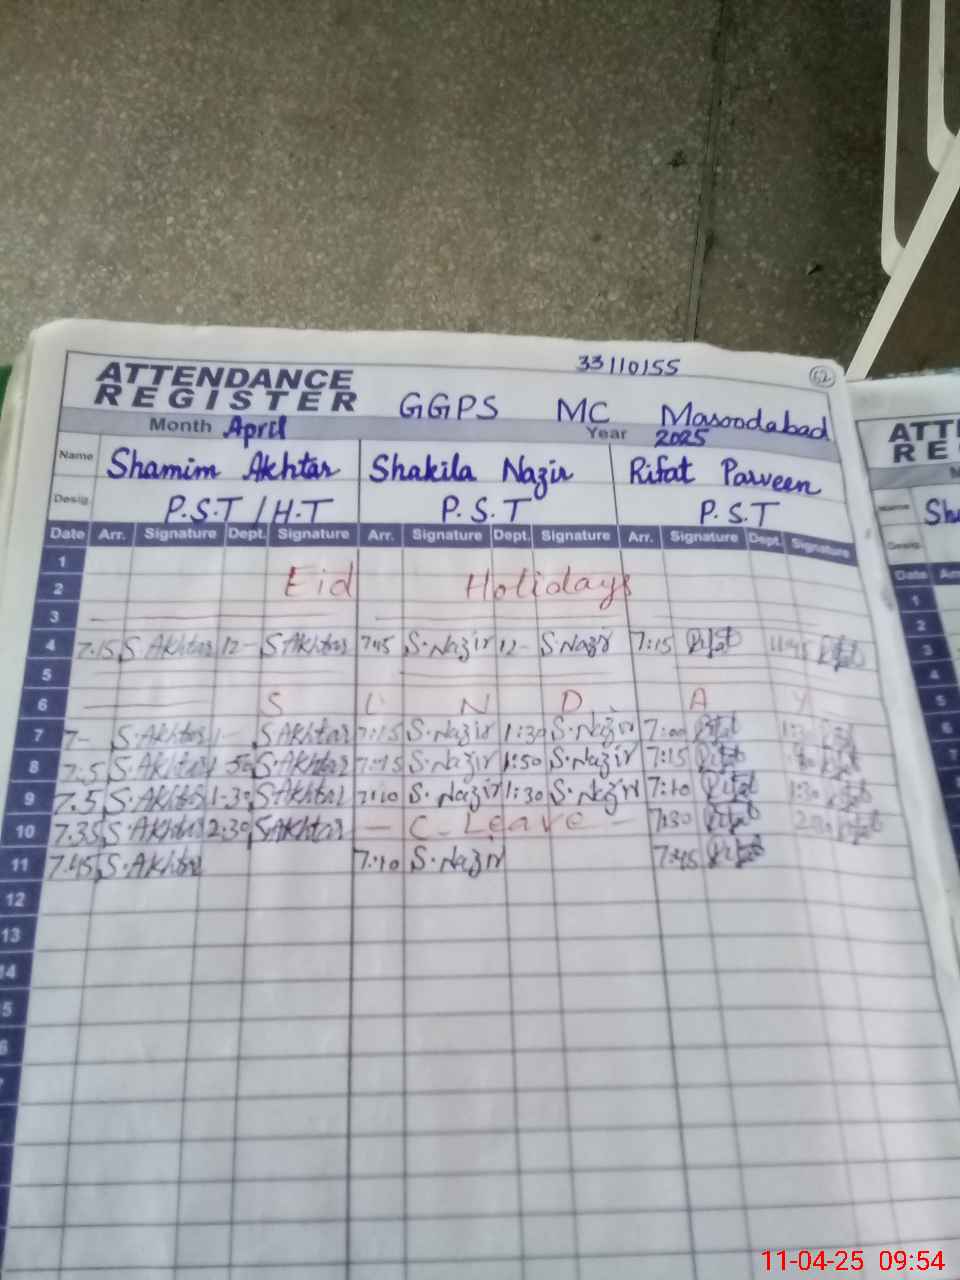 33110155
62
ATTENDANCE
REGISTER
GGPS MC Masoodabad
Month April Year 2025
Name Shamim Akhtar Shakila Nazir Rifat Parveen
Desig. P.S.T / H.T P.S.T P.S.T
Date Arr. Signature Dept. Signature Arr. Signature Dept. Signature Arr. Signature Dept. Signature
1
2 Eid Holidays
3
4 7.15 S.Akhtar 12- S.Akhtar 7:15 S.Nazir 12- S.Nazir 7:15
5
6 S U N D A Y
7 7- S.Akhtar 1- S.Akhtar 7:15 S.Nazir 1:30 S.Nazir 7:00
8 S.Akhtar S.Akhtar 7:15 S.Nazir 1:50 S.Nazir 7:15
9 7.5 S.Akhtar 1-30 S.Akhtar 7:10 S.Nazir 1:30 S.Nazir 7:10 1:30
10 7.35 S.Akhtar 2:30 S.Akhtar - C. Leave - 7:30
11 7.45 S.Akhtar 7:10 S.Nazir 7:45
12
13
14
ATT
RE
Sh
Date
1
2
3
4
5
6
7
11-04-25 09:54